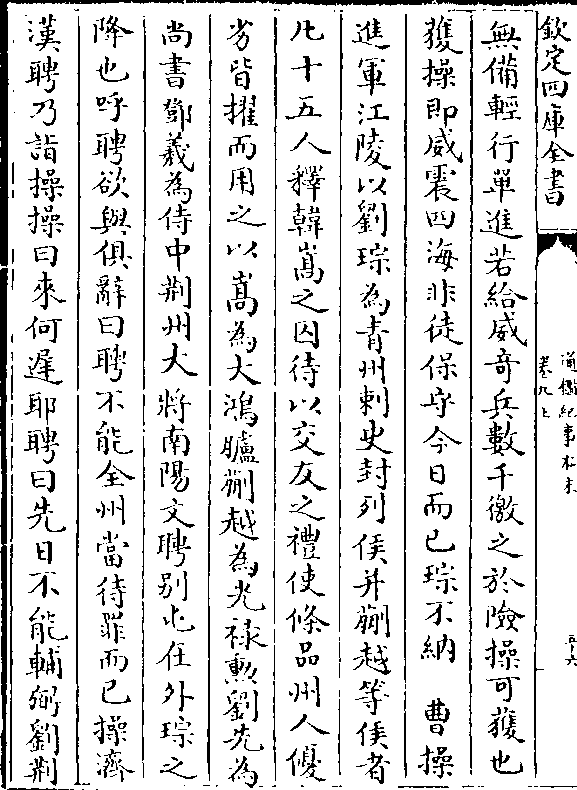 欽定四庫全書
通鑑紀事本末
卷九上
五十六
無備輕行單進若給威奇兵數千徼之於險操可獲也
獲操即威震四海非徒保守今日而已琮不納　曹操
進軍江陵以劉琮為青州刺史封列侯并蒯越等侯者
凡十五人釋韓嵩之囚待以交友之禮使條品州人優
劣皆擢而用之以嵩為大鴻臚蒯越為光祿勲劉先為
尚書鄧羲為侍中荆州大將南陽文聘别屯在外琮之
降也呼聘欲與俱辭曰聘不能全州當待罪而已操濟
漢聘乃詣操操曰來何遲耶聘曰先日不能輔弼劉荆